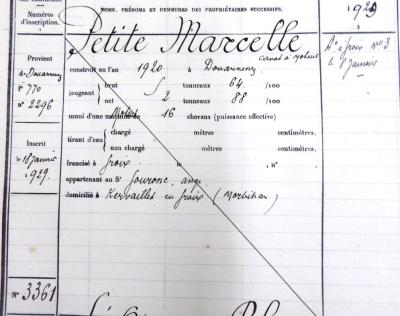 Numéros
d'inscription.
NOMS, PRÉNOMS ET DEMEURES DES PROPRIÉTAIRES SUCCESSIFS.
1929
Petite Marcelle
canot à moteur
Provient
de Douarnenez
n° 770
n° 2296
construit en l'an 1920 à Douarnenez
jaugeant brut 5 tonneaux 64 /100
net 2 tonneaux 88 /100
muni d'une machine de 16 chevaux (puissance effective)
tirant d'eau chargé mètres centimètres.
non chargé mètres centimètres.
Inscrit
le 18 janvier
1929.
francisé à Groix le n°
appartenant au Sr Gouronc, ange
domicilié à Kervaillet en Groix (Morbihan)
à Groix N° 3
le 8 Janvier
N° 3361